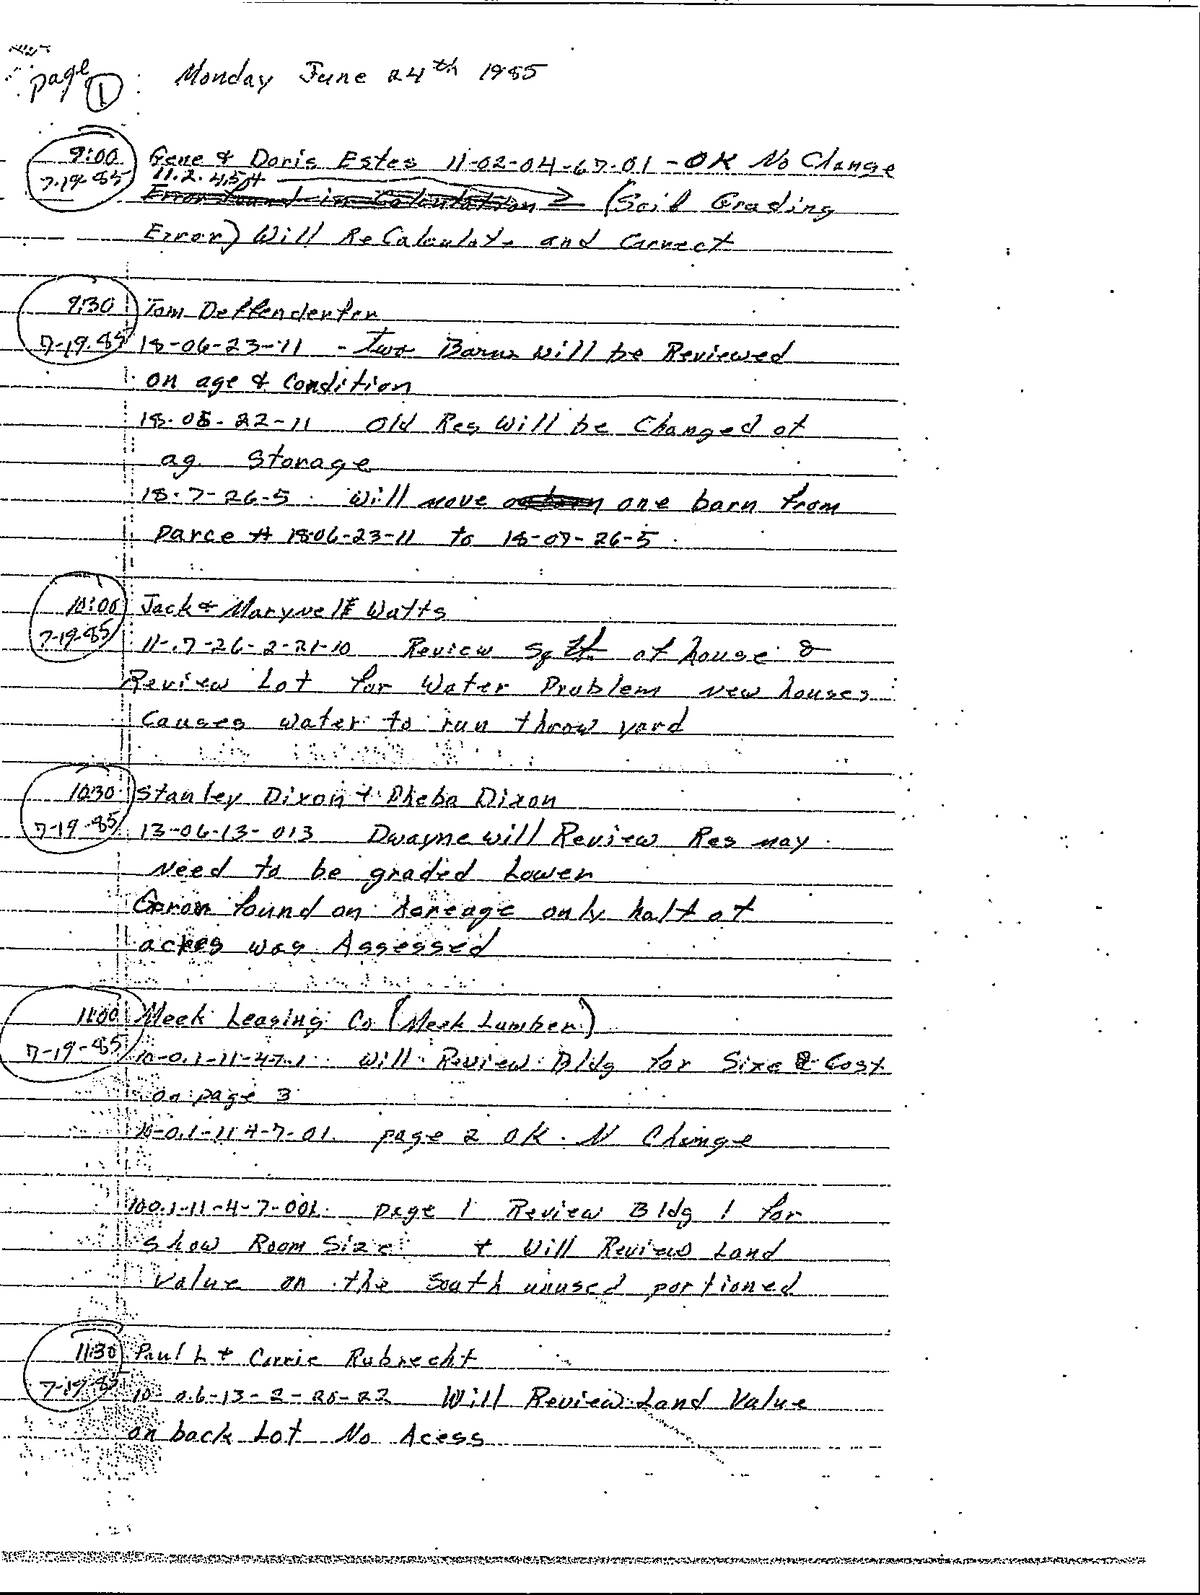 page 1 Monday June 24th 1985
9:00 Gene & Doris Estes 11-02-04-67-01 - OK No Change
7-19-85 11.2.4,5+ Error found in Calculation (Soil Grading
Error) Will ReCalculate and Correct
9:30 Tom Deffenderfer
7-19-85 18-06-23-11 - Two Barns will be Reviewed
on age & Condition
18-05-22-11 Old Res Will be Changed at
ag. Storage
18-7-26-5. Will move one barn from
Parce # 1806-23-11 to 18-07-26-5.
10:00 Jack & Maryvelle Watts
7-19-85 11-.7-26-2-21-10 Review Sq ft. of house &
Review Lot for Water Problem new houses
Causes water to run throw yard
10:30 Stanley Dixon & Pheba Dixon
7-19-85 13-06-13-013 Dwayne will Review Res may
Need to be graded Lower
Error found on Acreage only half of
acres was Assessed
11:00 Meek Leasing Co (Meek Lumber)
7-19-85 10-0.1-11-4-7.1. will Review Bldg for Size & Cost
on page 3
10-0.1-11 4-7-01. page 2 OK. N Change
100.1-11-4-7-001. page 1 Review Bldg 1 for
Show Room Size & Will Review Land
Value on the South unused portioned
11:30 Paul L & Carrie Rubrecht
7-19-85 10-0.6-13-2-20-22 Will Review Land Value
on back Lot No Acess